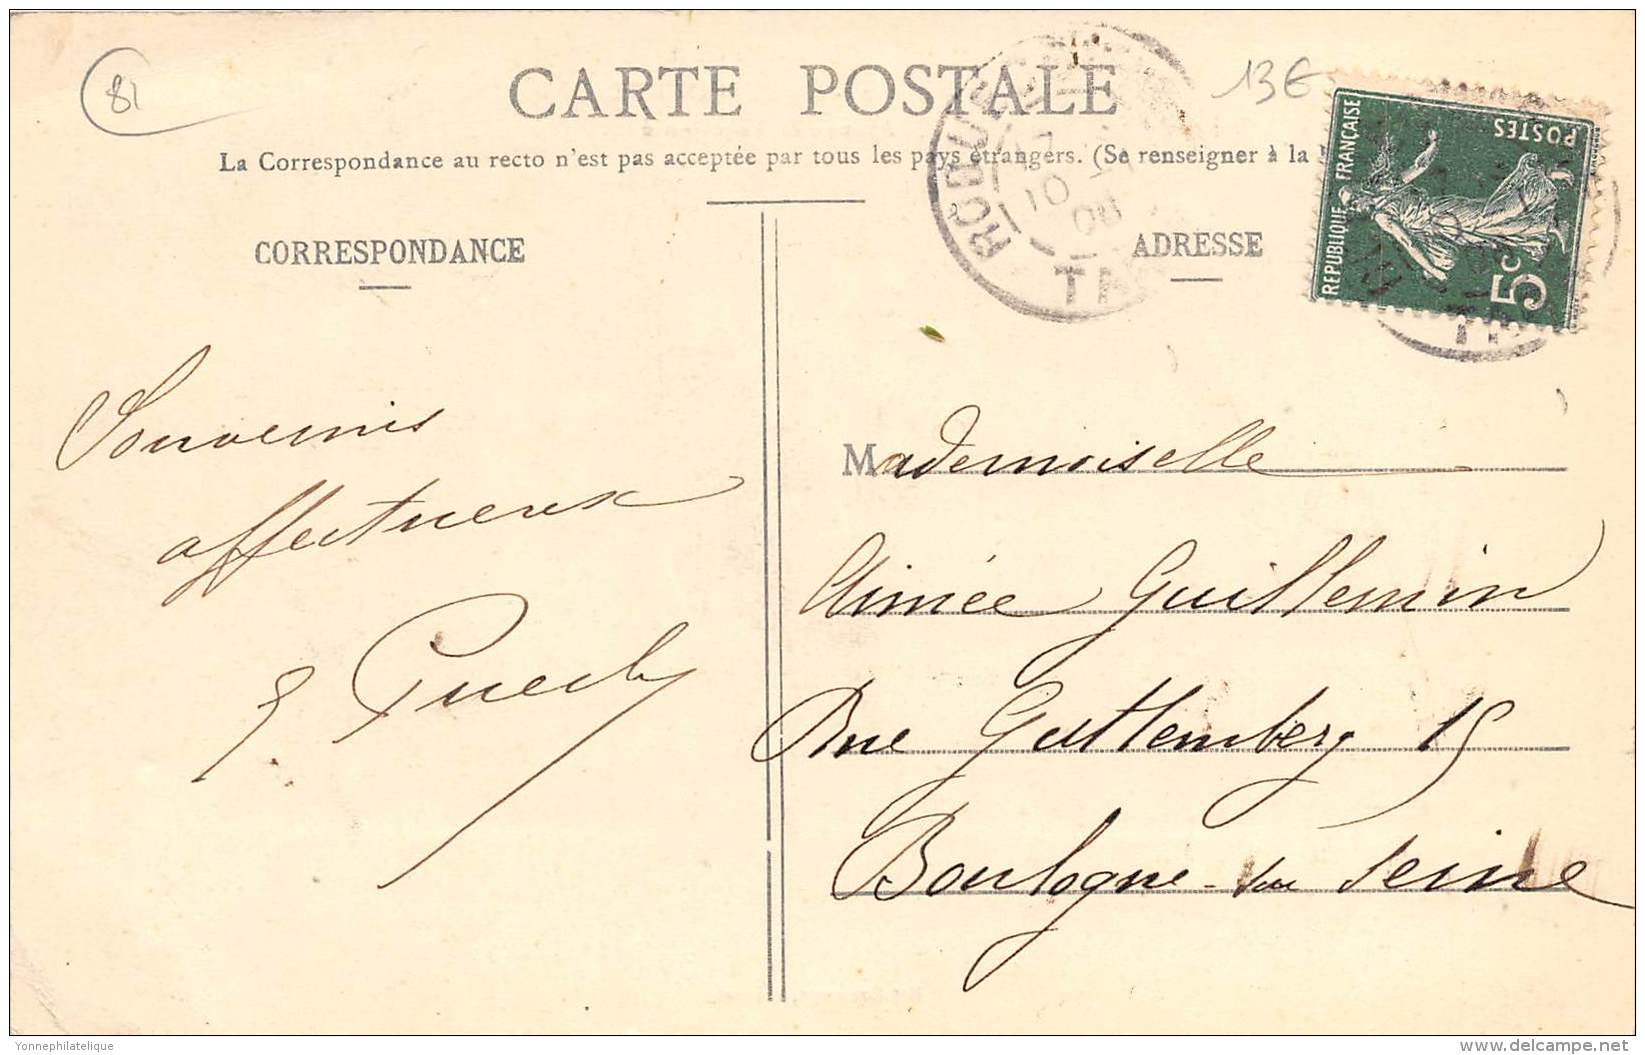 81
CARTE POSTALE
13€
La Correspondance au recto n'est pas acceptée par tous les pays étrangers. (Se renseigner à la
ROQU
10
08
TARN
REPUBLIQUE FRANÇAISE
POSTES
5c
CORRESPONDANCE
ADRESSE
Souvenirs
affectueux
Mademoiselle
Aimée Guillemin
Rue Guttemberg 15
Boulogne-sur Seine
Yonnephilatelique
delcampe.net